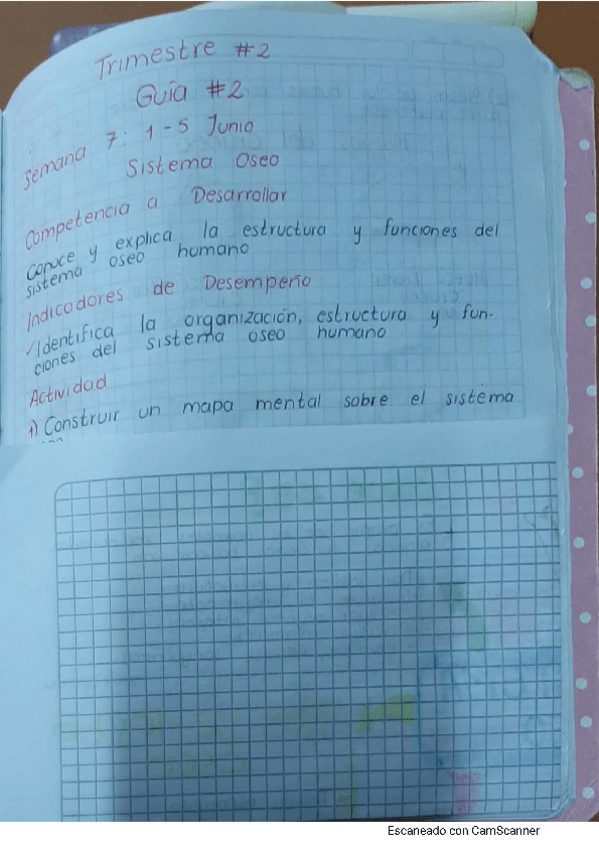 Trimestre #2
Guía #2
Semana 7: 1-5 Junio
Sistema Oseo
Competencia a Desarrollar
conoce y explica la estructura y funciones del
sistema oseo humano
Indicadores de Desempeño
✓Identifica la organización, estructura y fun-
ciones del sistema oseo humano
Actividad
1) Construir un mapa mental sobre el sistema
Escaneado con CamScanner